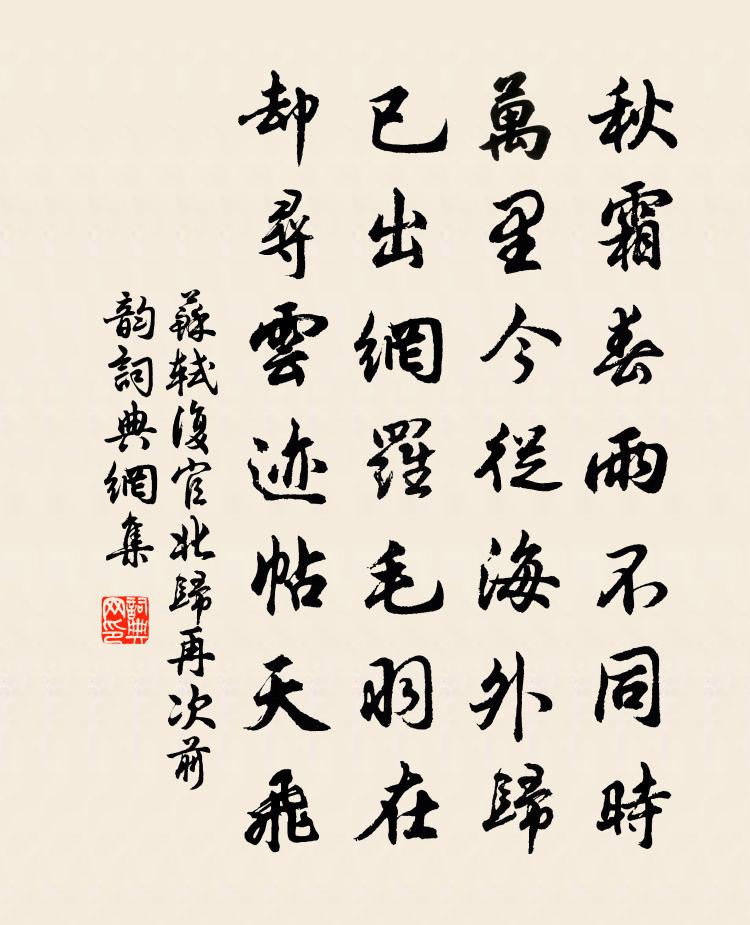 秋霜春雨不同時
萬里今從海外歸
已出網羅毛羽在
却尋雲迹帖天飛
蘇軾復官北歸再次前
韵詞典網集
詞典网印